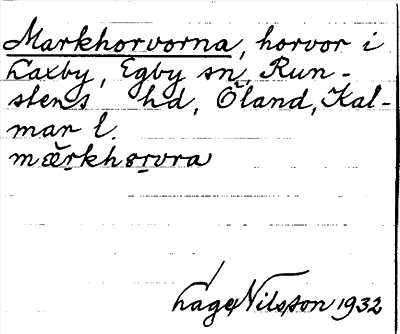 Markhorvorna, horvor i
Laxby, Egby sn, Run-
stens hd, Öland, Kal-
mar l.
Lage Nilsson 1932